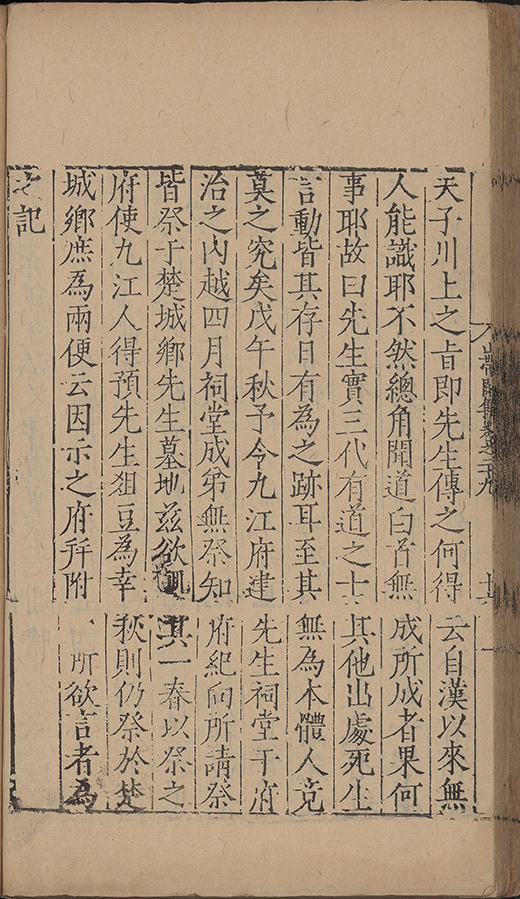 天子川上之旨即先生傳之何得云自漢以來無
人能識耶不然總角聞道白首無成所成者果何
事耶故曰先生實三代有道之士其他出處死生
言動皆其存日有為之跡耳至其無為本體人竟
莫之究矣戊午秋予令九江府建先生祠堂于府
治之内越四月祠堂成弟無祭知府紀向所請祭
皆祭于楚城鄉先生墓地兹欲其一春以祭之
府使九江人得預先生俎豆為幸秋則仍祭於楚
城鄉庶為兩便云因示之府并附所欲言者為
之記